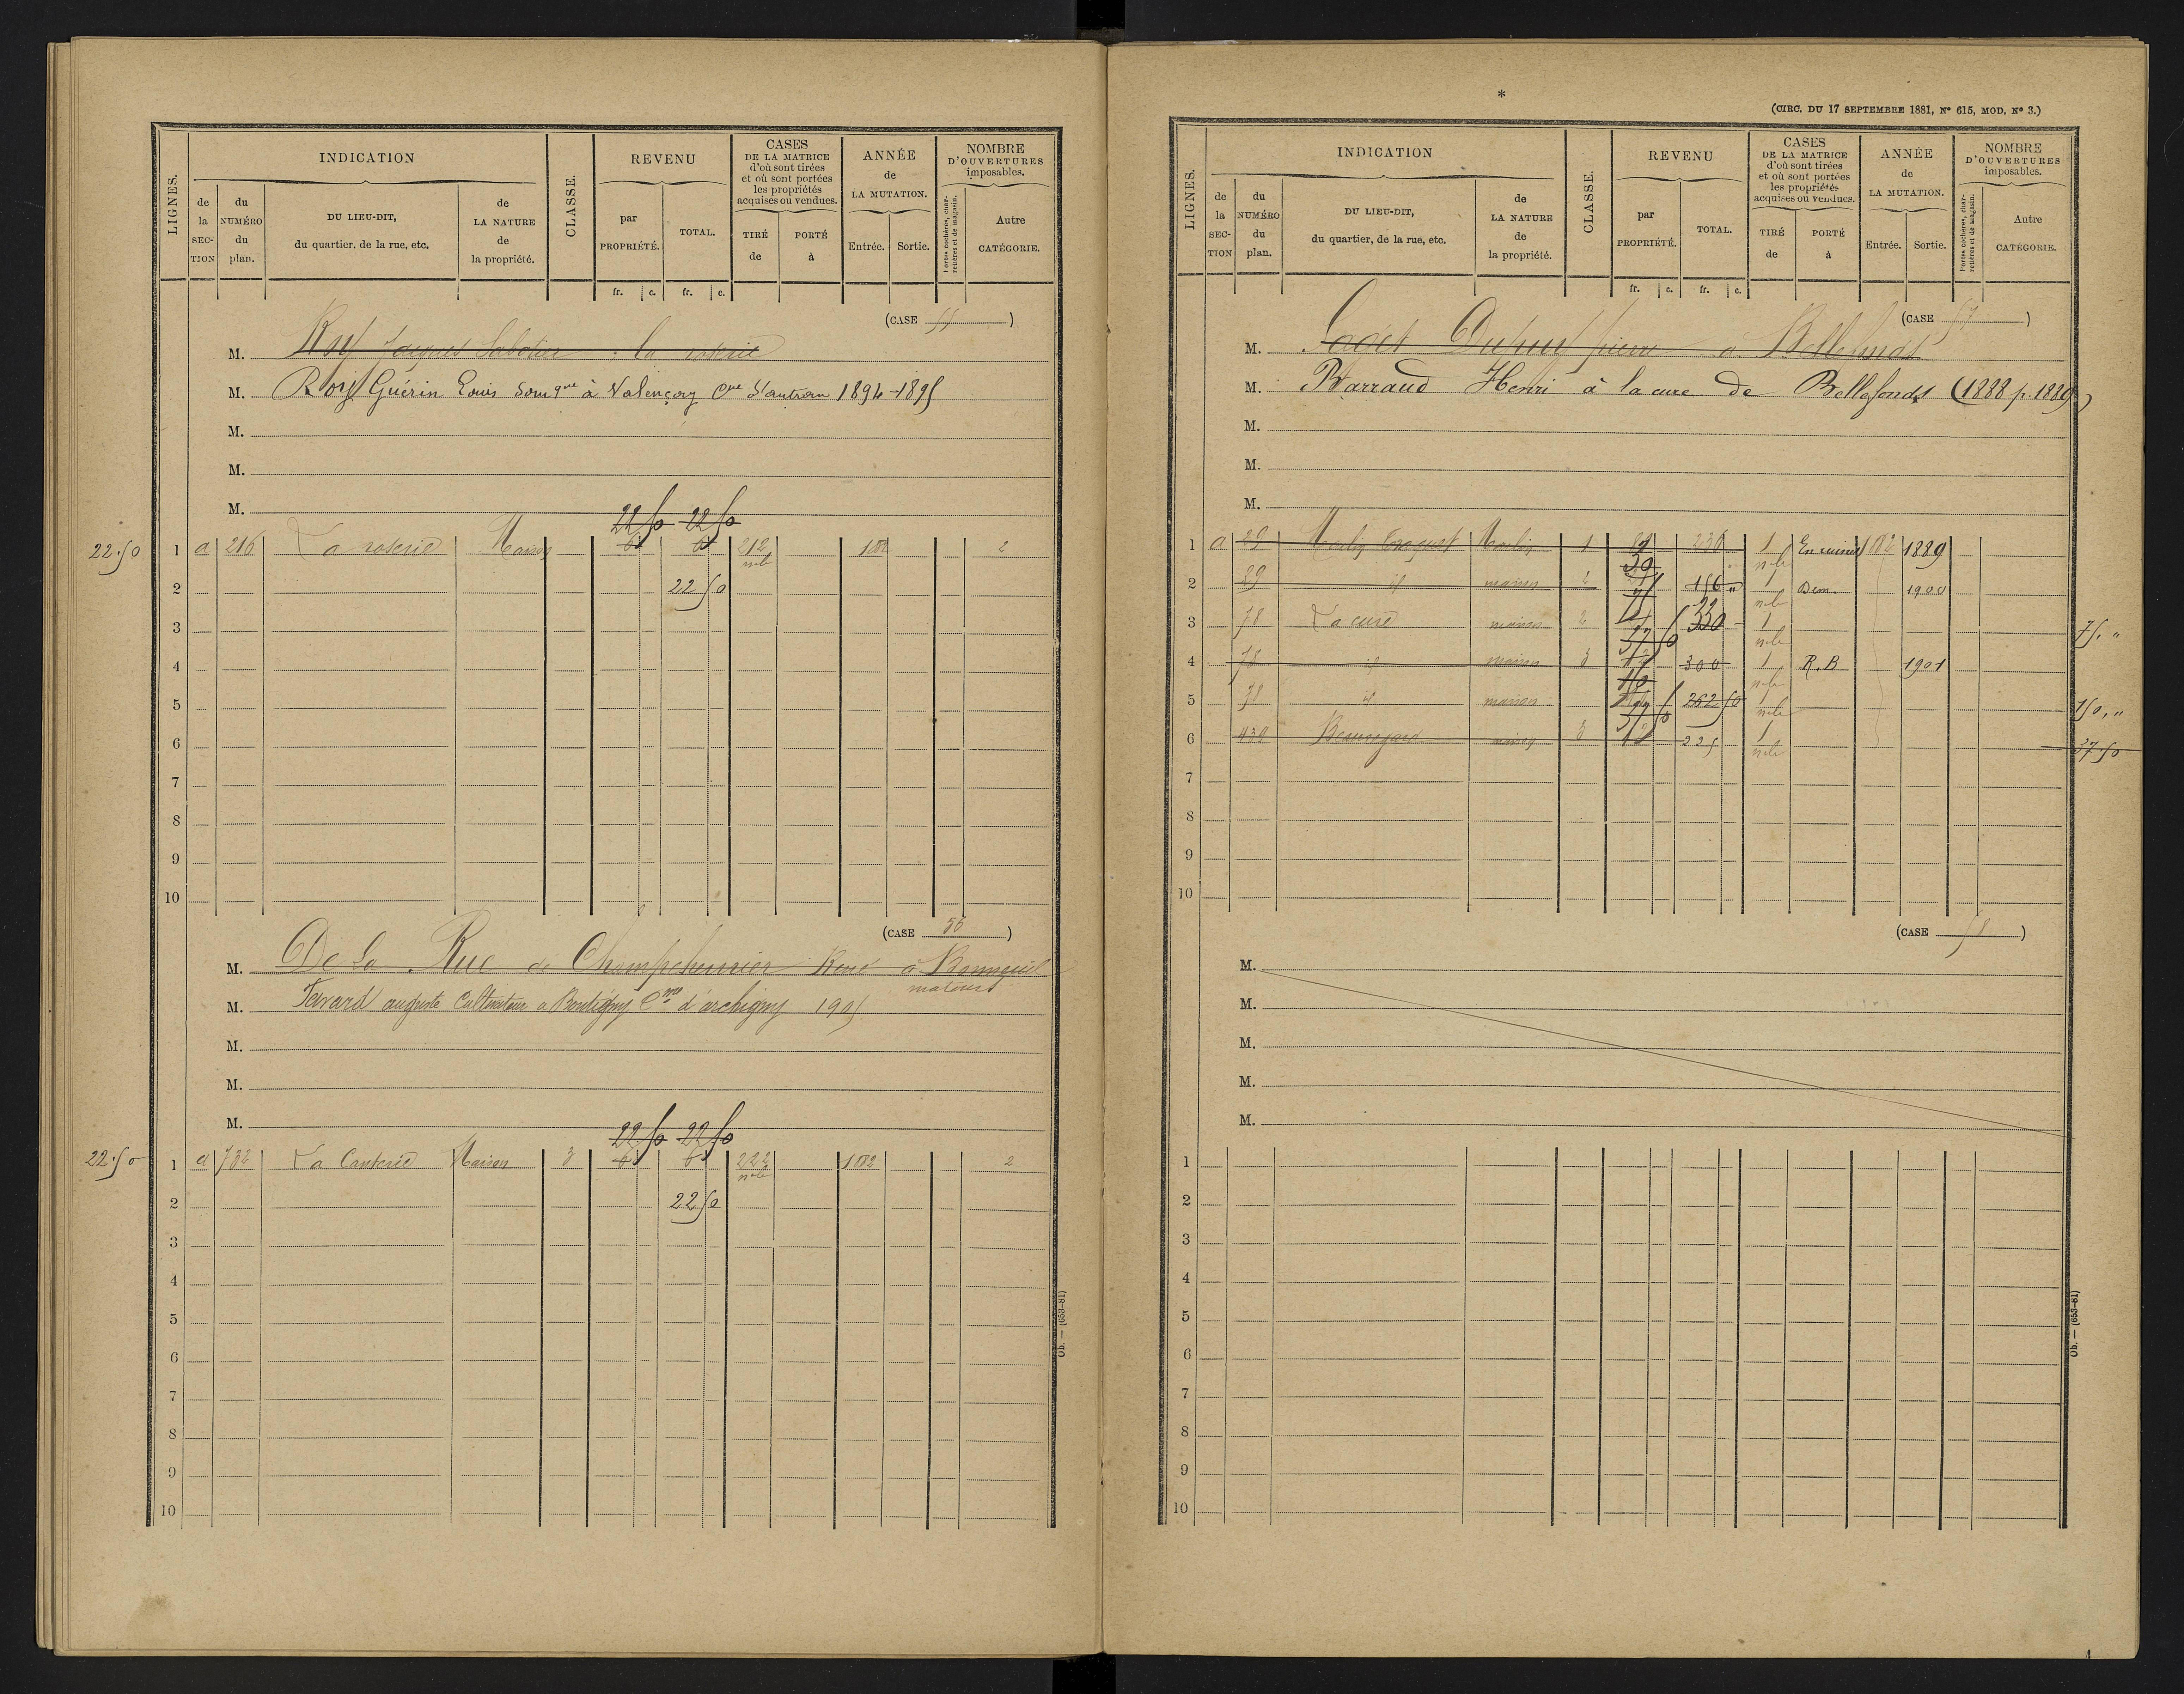 LIGNES.
INDICATION
de la SECTION
du NUMÉRO du plan.
DU LIEU-DIT, du quartier, de la rue, etc.
de LA NATURE de la propriété.
CLASSE.
REVENU
par PROPRIÉTÉ.
TOTAL.
fr. c. fr. c.
CASES DE LA MATRICE d'où sont tirées et où sont portées les propriétés acquises ou vendues.
TIRÉ de
PORTÉ à
ANNÉE de LA MUTATION.
Entrée. Sortie.
NOMBRE D'OUVERTURES imposables.
Portes cochères, charretières et de magasin.
Autre CATÉGORIE.
(CASE 55)
M. Roy Jacques Sabotier la roserie
M. Roy Guérin Louis domque à Valençay Cne d'autran 1894-1895
M.
M.
M.
22 50 22 50
22.50 1 a 216 La roserie Maison 212 1882 2
2 22 50
3
4
5
6
7
8
9
10
(CASE 56)
M. De La Rue de Champchevrier René à Bonneuil
matours
M. Favard auguste Cultivateur a Bontigny Cne d'archigny 1905
M.
M.
M.
22 50 22 50
22.50 1 a 732 La Canterie Maison 3 222 1882 2
2 22 50
3
4
5
6
7
8
9
10
Ob. — (653-81)
*
(CIRC. DU 17 SEPTEMBRE 1881, No 615, MOD. No 3.)
LIGNES.
INDICATION
de la SECTION
du NUMÉRO du plan.
DU LIEU-DIT, du quartier, de la rue, etc.
de LA NATURE de la propriété.
CLASSE.
REVENU
par PROPRIÉTÉ.
TOTAL.
fr. c. fr. c.
CASES DE LA MATRICE d'où sont tirées et où sont portées les propriétés acquises ou vendues.
TIRÉ de
PORTÉ à
ANNÉE de LA MUTATION.
Entrée. Sortie.
NOMBRE D'OUVERTURES imposables.
Portes cochères, charretières et de magasin.
Autre CATÉGORIE.
(CASE 57)
M. Dupuy pierre a Bellefonds
M. Barraud Henri à la cure de Bellefonds (1888 p. 1889)
M.
M.
M.
1 a 29 Moulin 1 1 En ruines 1882 1889
2 29 id maison 2 1 Dem. 1900
3 78 La cure maison 2 1 75, "
4 78 id maison 3 300 1 R.B 1901
5 78 id maison 262 50 1 150, "
6 439 Beauregard maison 3 225 1 37 50
7
8
9
10
(CASE 58)
M.
M.
M.
M.
M.
1
2
3
4
5
6
7
8
9
10
Ob. — (653-81)